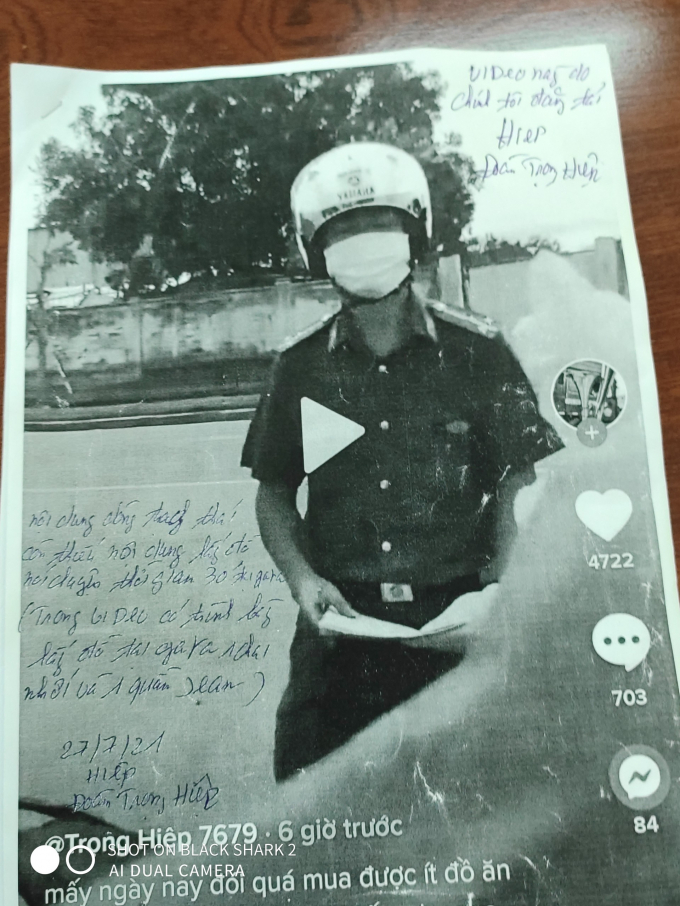 VIDeo này do
chính tôi đăng tải
Hiệp
Đoàn Trọng Hiệp
YAMAHA
4722
703
84
nội dung đăng
còn thiếu nội dung lấy đồ
thời gian 30
(Trong VIDeo có trình bày
lấy đồ tại 1 chai
và 1 quần Jean)
27/7/21
Hiệp
Đoàn Trọng Hiệp
@Trọng Hiệp 7679 · 6 giờ trước
SHOT ON BLACK SHARK 2
AI DUAL CAMERA
mấy ngày nay đói quá mua được ít đồ ăn